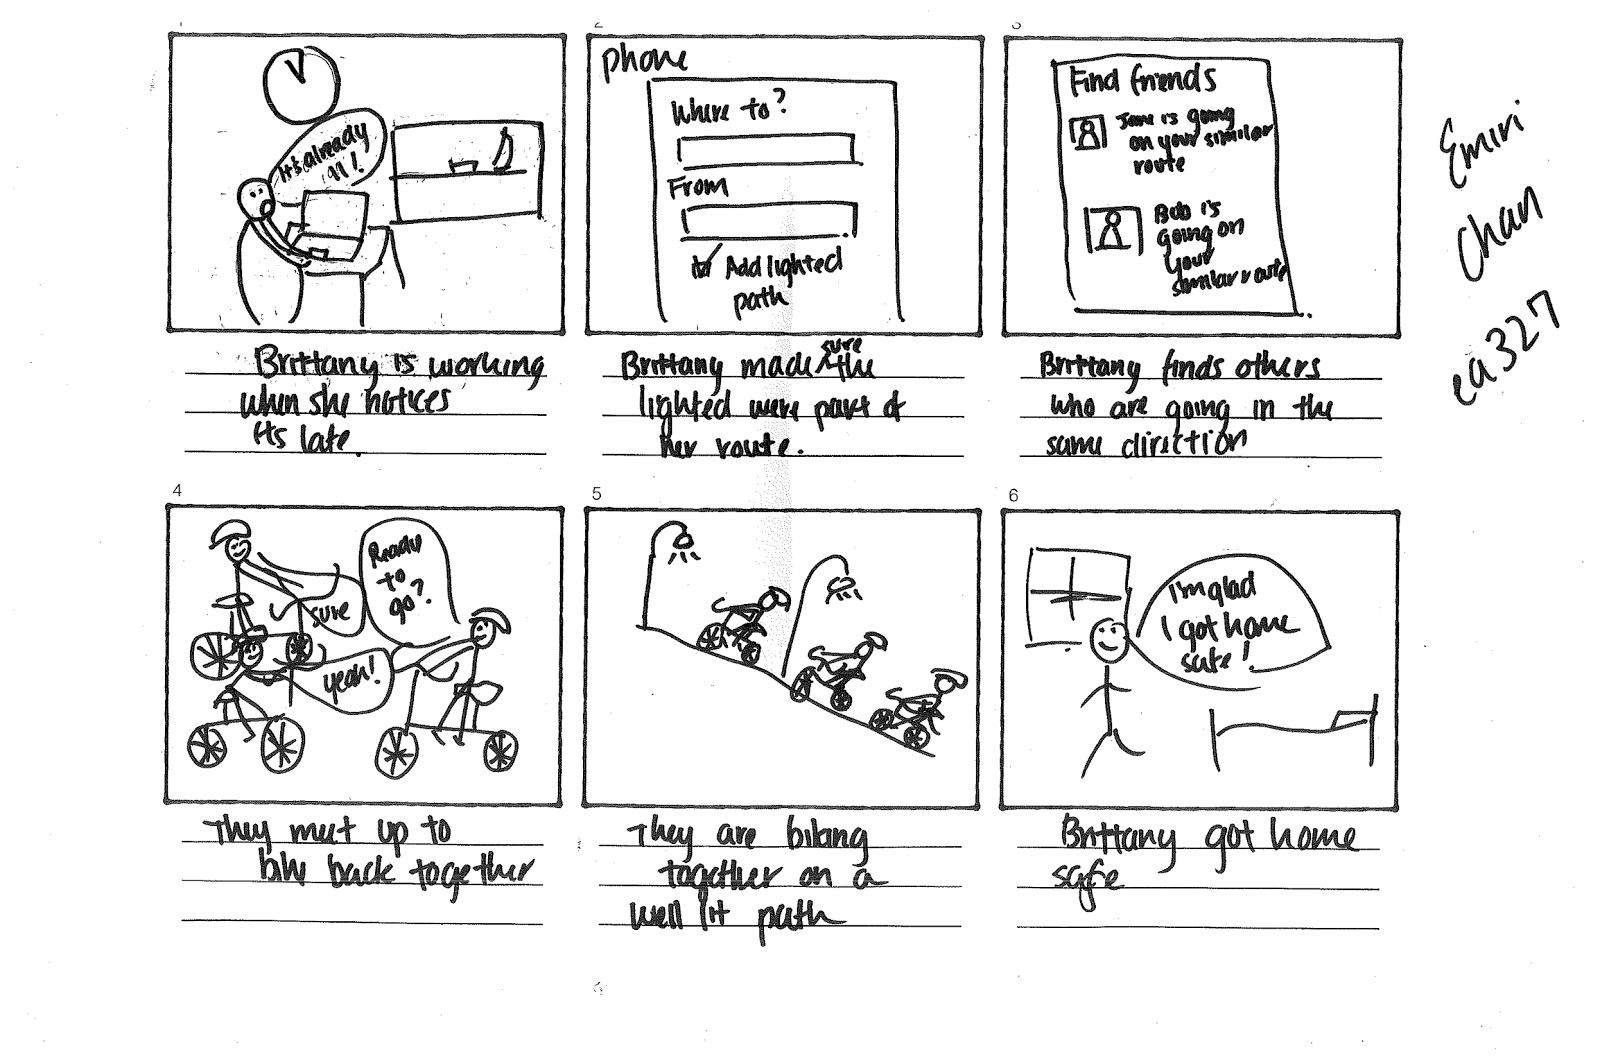 1
It's already
11!
Brittany is working
when she notices
its late.
2
phone
Where to?
From
Add lighted
path
Brittany made sure the
lighted were part of
her route.
3
Find friends
Jane is going
on your similar
route
Bob is
going on
your
similar route
Brittany finds others
who are going in the
same direction
4
Ready
to
go?
sure
yeah!
They meet up to
bike back together
5
They are biking
together on a
well lit path
6
I'm glad
I got home
safe!
Brittany got home
safe
Emiri
Chan
ea327